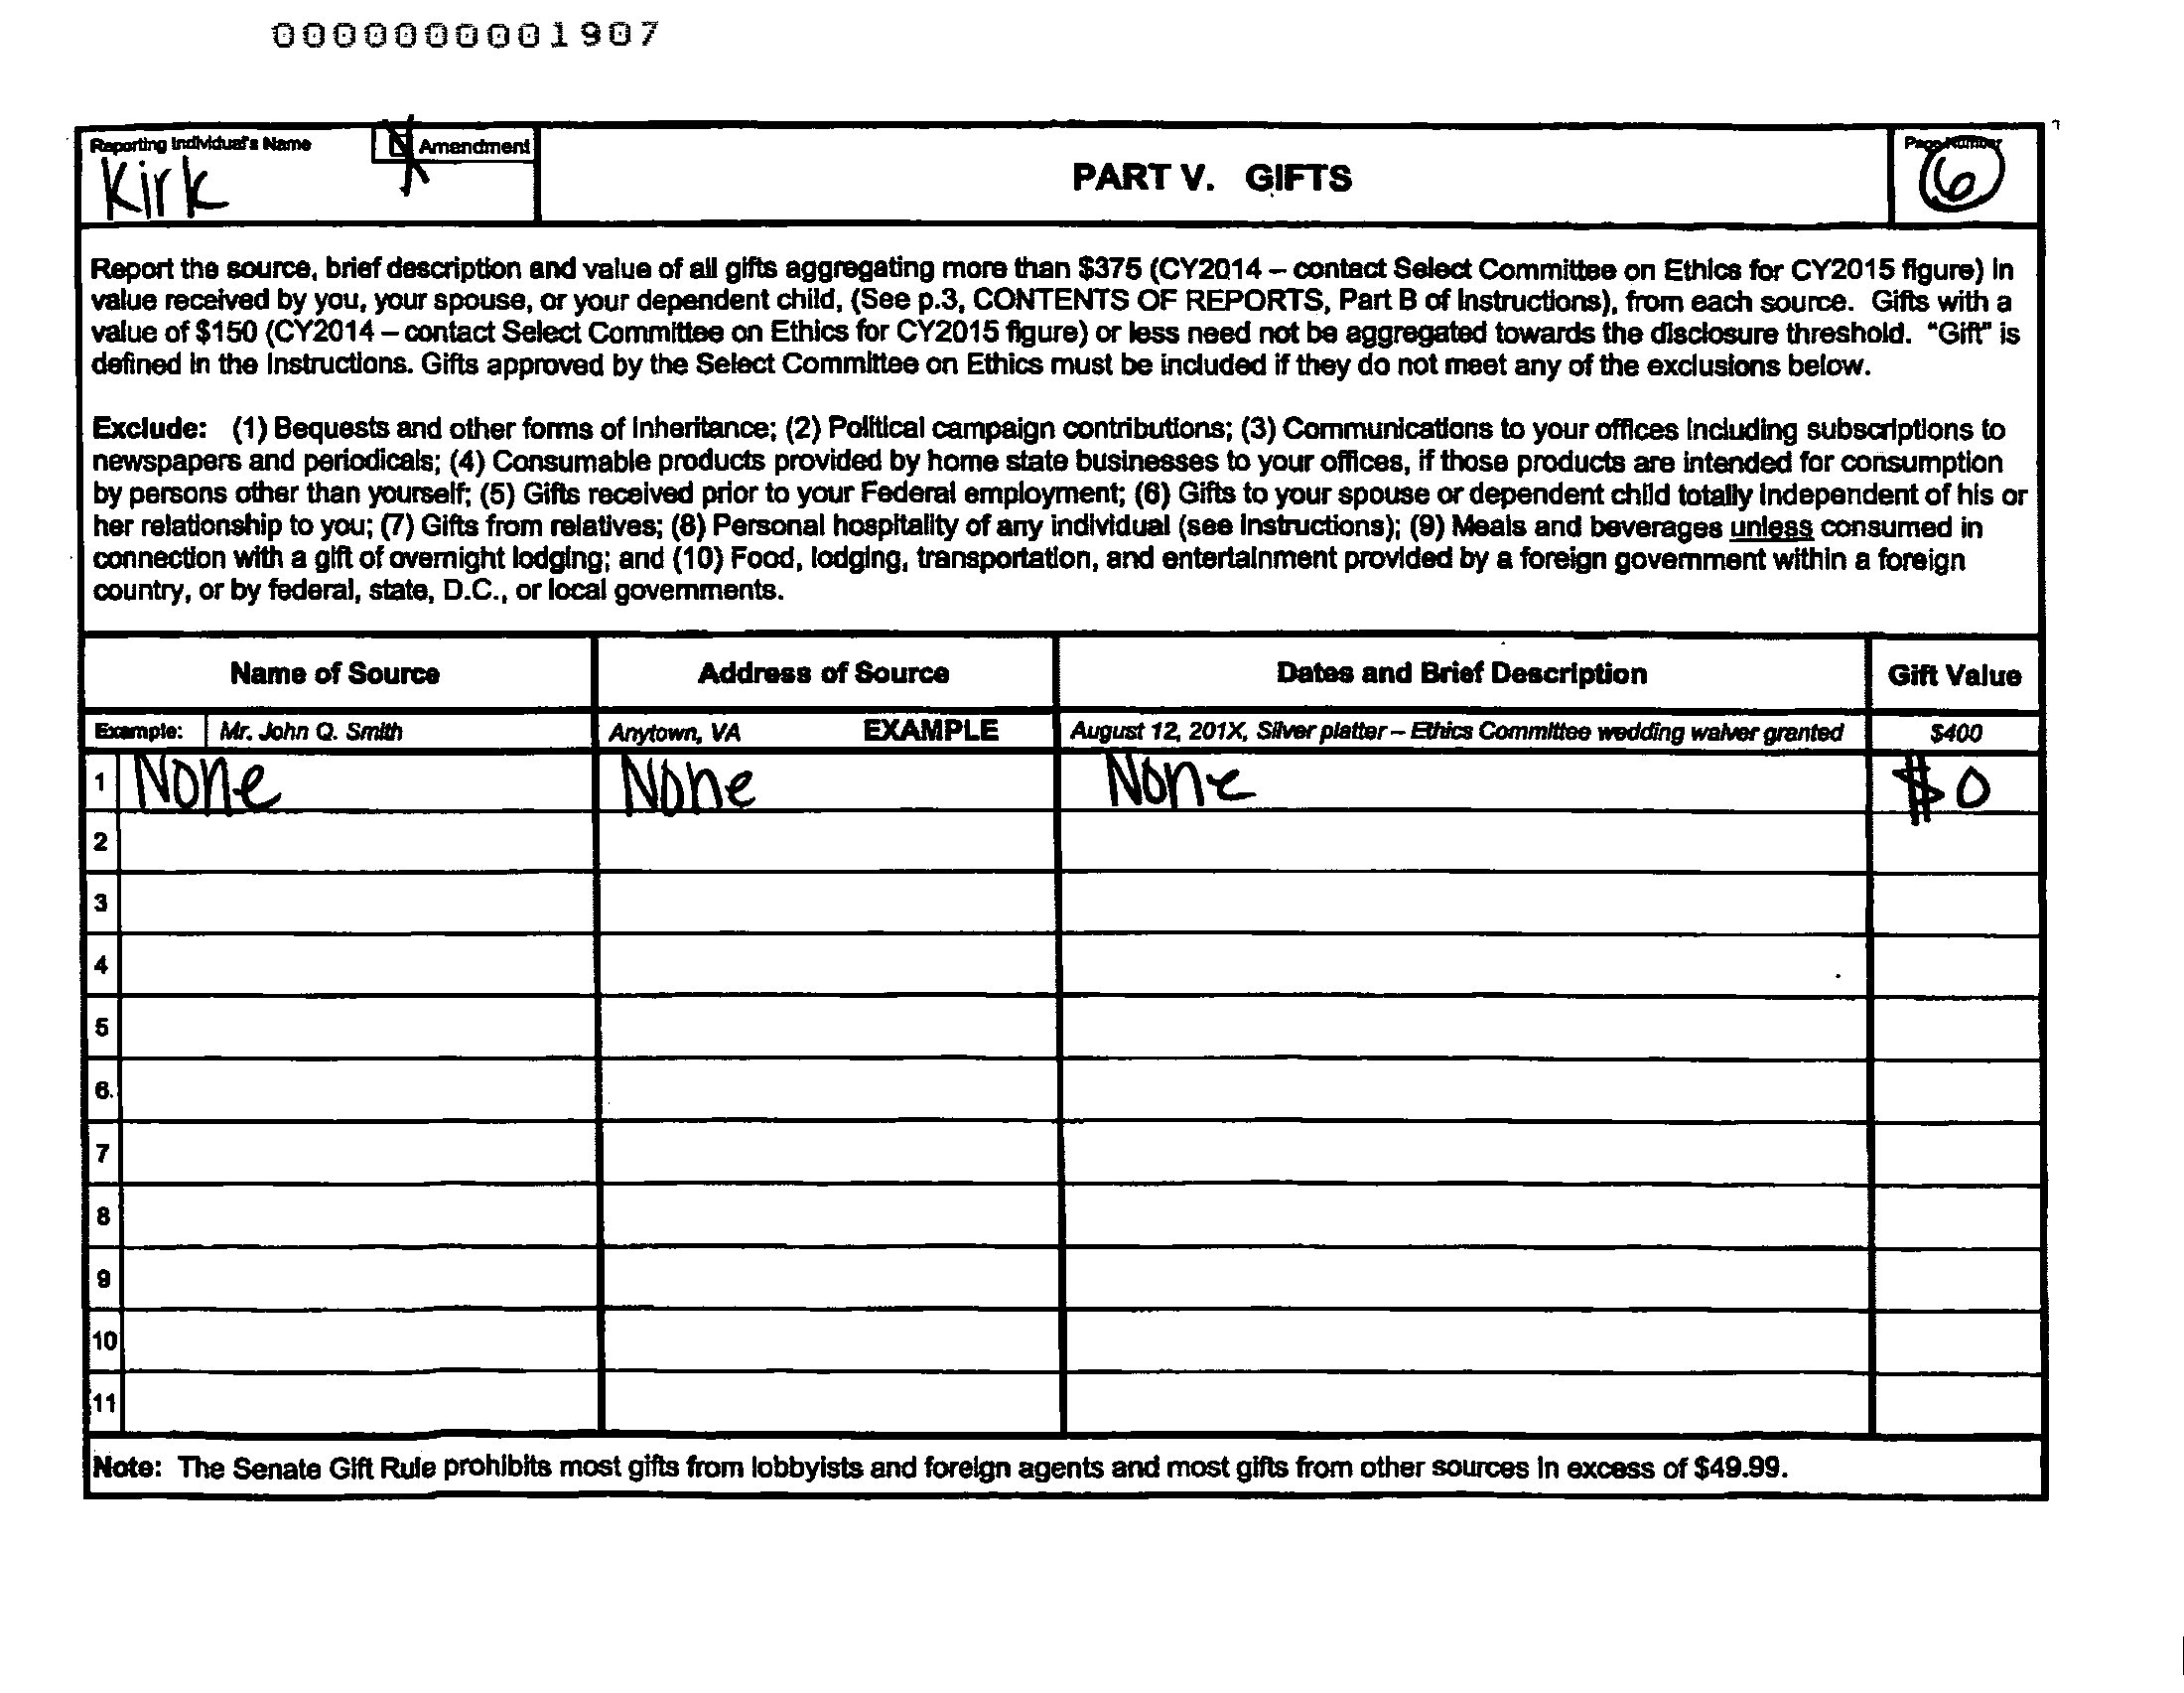 0000000001907
Reporting Individual's Name
Amendment
Kirk
PART V. GIFTS
Page Number
6
Report the source, brief description and value of all gifts aggregating more than $375 (CY2014 – contact Select Committee on Ethics for CY2015 figure) in
value received by you, your spouse, or your dependent child, (See p.3, CONTENTS OF REPORTS, Part B of Instructions), from each source. Gifts with a
value of $150 (CY2014 – contact Select Committee on Ethics for CY2015 figure) or less need not be aggregated towards the disclosure threshold. "Gift" is
defined in the Instructions. Gifts approved by the Select Committee on Ethics must be included if they do not meet any of the exclusions below.
Exclude: (1) Bequests and other forms of inheritance; (2) Political campaign contributions; (3) Communications to your offices including subscriptions to
newspapers and periodicals; (4) Consumable products provided by home state businesses to your offices, if those products are intended for consumption
by persons other than yourself; (5) Gifts received prior to your Federal employment; (6) Gifts to your spouse or dependent child totally independent of his or
her relationship to you; (7) Gifts from relatives; (8) Personal hospitality of any individual (see instructions); (9) Meals and beverages unless consumed in
connection with a gift of overnight lodging; and (10) Food, lodging, transportation, and entertainment provided by a foreign government within a foreign
country, or by federal, state, D.C., or local governments.
Name of Source Address of Source Dates and Brief Description Gift Value
Example: Mr. John Q. Smith Anytown, VA EXAMPLE August 12, 201X, Silver platter – Ethics Committee wedding waiver granted $400
1 None None None $0
2
3
4
5
6.
7
8
9
10
11
Note: The Senate Gift Rule prohibits most gifts from lobbyists and foreign agents and most gifts from other sources in excess of $49.99.